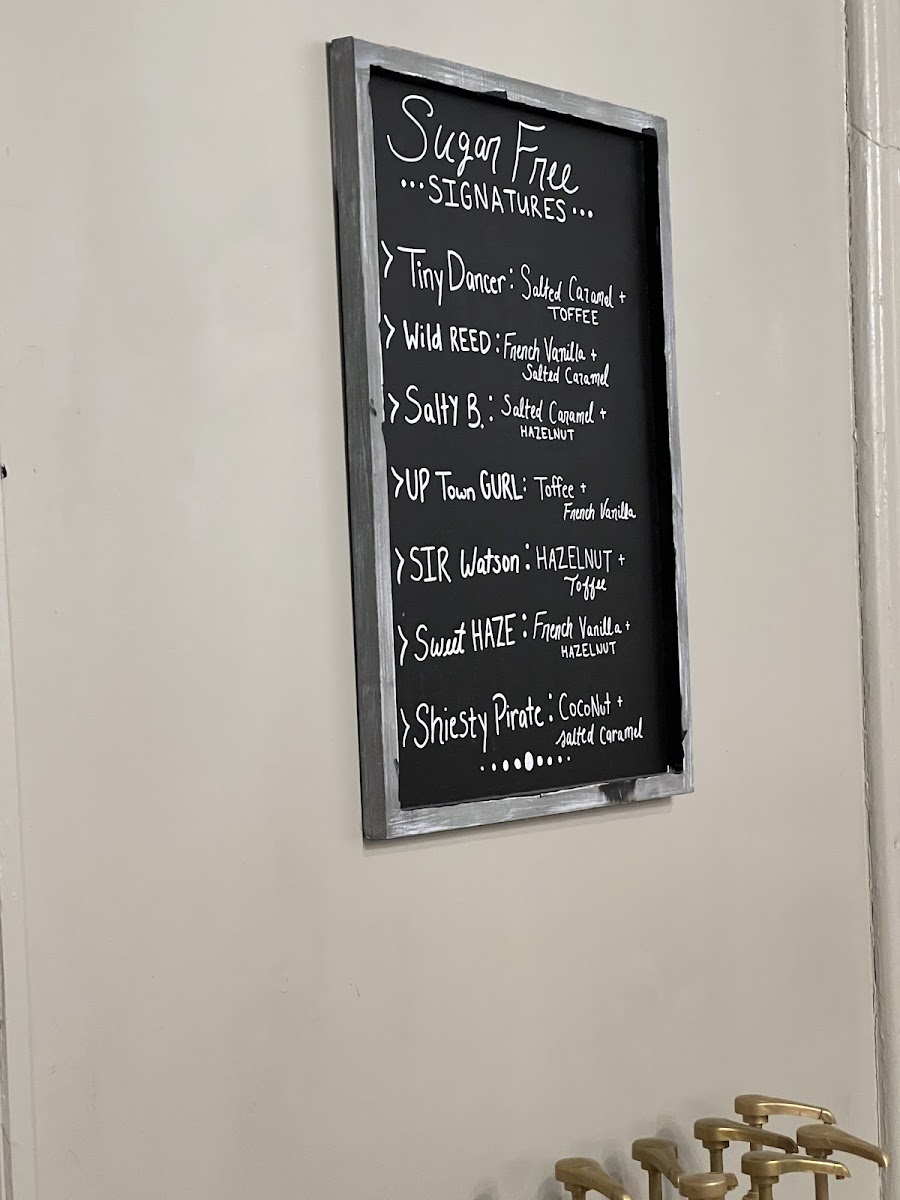 Sugar Free
•••SIGNATURES•••
> Tiny Dancer: Salted Caramel +
TOFFEE
> Wild REED: French Vanilla +
Salted Caramel
> Salty B.: Salted Caramel +
HAZELNUT
> UP Town GURL: Toffee +
French Vanilla
> SIR Watson: HAZELNUT +
Toffee
> Sweet HAZE: French Vanilla +
HAZELNUT
> Shiesty Pirate: CocoNut +
salted Caramel